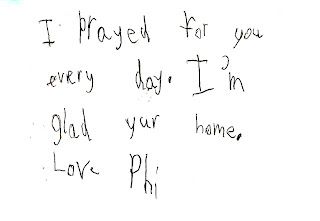 I prayed for you
every day. I'm
glad yur home.
Love Phi